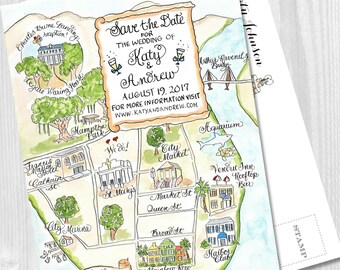 Charles Towne Landing
reception!
Save the Date
FOR
THE WEDDING OF
Katy
&
Andrew
AUGUST 19, 2017
FOR MORE INFORMATION VISIT
WWW.KATYANDANDREW.COM
Ashley Ravenel Jr.
Bridge
Johnson
Hampton
Park
Aquarium
We do!
City
Market
Francis
Calhoun
St.
St. Mary's
Market St.
Queen St.
Vendue Inn
Rooftop
Bar
City Marina
Broad St.
Harbor
Club
STAMP